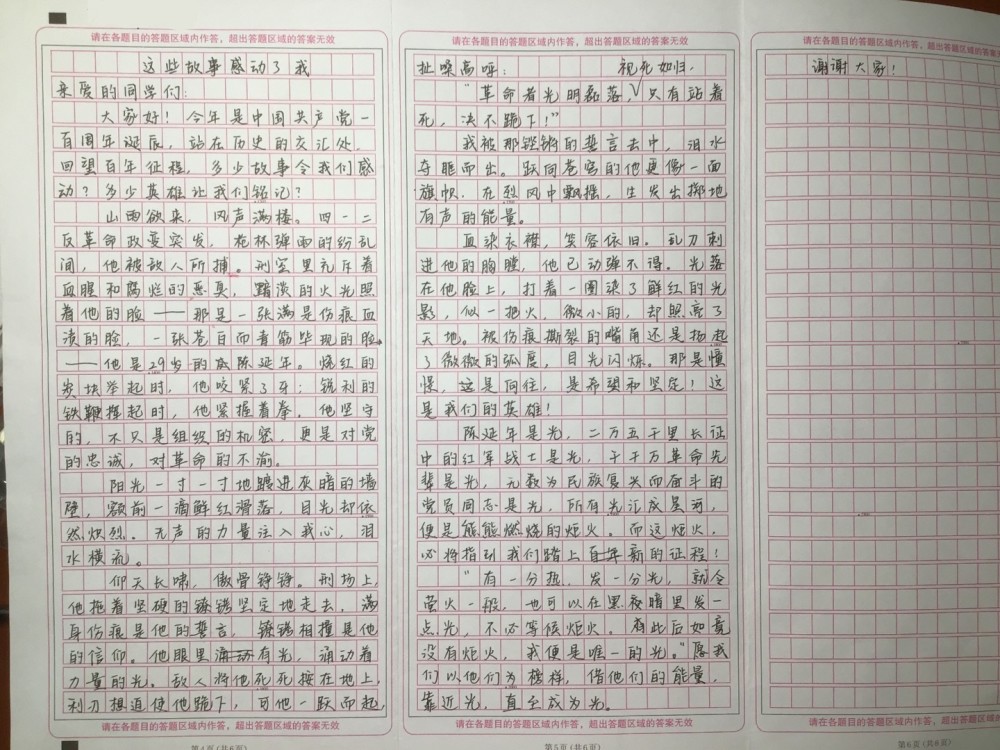 请在各题目的答题区域内作答，超出答题区域的答案无效
这些故事感动了我
亲爱的同学们：
大家好！今年是中国共产党一
百周年诞辰，站在历史的交汇处，
回望百年征程，多少故事令我们感
动？多少英雄让我们铭记？
山雨欲来，风声满楼。四一二
反革命政变突发，枪林弹雨的纷乱
间，他被敌人所捕。刑室里充斥着
血腥和腐烂的恶臭，黯淡的火光照
着他的脸——那是一张满是伤痕血
渍的脸，一张苍白而青筋毕现的脸。
——他是29岁的陈延年。烧红的
炭块举起时，他咬紧了牙；锐利的
铁鞭挥起时，他紧握着拳。他坚守
的，不只是组织的机密，更是对党
的忠诚，对革命的不渝。
阳光一寸一寸地踱进灰暗的墙
壁，额前一滴鲜红滑落，目光却依
然炽烈。无声的力量注入我心，泪
水横流。
仰天长啸，傲骨铮铮。刑场上，
他拖着坚硬的镣铐坚定地走去，满
身伤痕是他的誓言，镣铐相撞是他
的信仰。他眼里有光，涌动着
力量的光。敌人将他死死按在地上，
利刃想迫使他跪下，可他一跃而起，
请在各题目的答题区域内作答，超出答题区域的答案无效
第4页(共6页)
请在各题目的答题区域内作答，超出答题区域的答案无效
扯嗓高呼：视死如归，
“革命者光明磊落，只有站着
死，决不跪下！”
我被那铿锵的誓言击中，泪水
夺眶而出。跃向苍穹的他更像一面
旗帜，在烈风中飘摇，生发出掷地
有声的能量。
血染衣襟，笑容依旧。乱刀刺
进他的胸膛，他已动弹不得。光落
在他脸上，打着一圈染了鲜红的光
影，似一把火，微小的，却照亮了
天地。被伤痕撕裂的嘴角还是扬起
了微微的弧度，目光闪烁。那是憧
憬，这是向往，是希望和坚定！这
是我们的英雄！
陈延年是光，二万五千里长征
中的红军战士是光，千千万革命先
辈是光，无数为民族复兴而奋斗的
党员同志是光，所有光汇成星河，
便是熊熊燃烧的炬火。而这炬火，
必将指引我们踏上百年新的征程！
“有一分热，发一分光，就令
萤火一般，也可以在黑夜暗里发一
点光，不必等候炬火。有此后如竟
没有炬火，我便是唯一的光。”愿我
们以他们为榜样，借他们的能量，
靠近光，直至成为光。
请在各题目的答题区域内作答，超出答题区域的答案无效
第5页(共6页)
请在各题目的答题区域内作答，超出答题区域的
谢谢大家！
请在各题目的答题区域内作答，超出答题区域的
第6页(共6页)